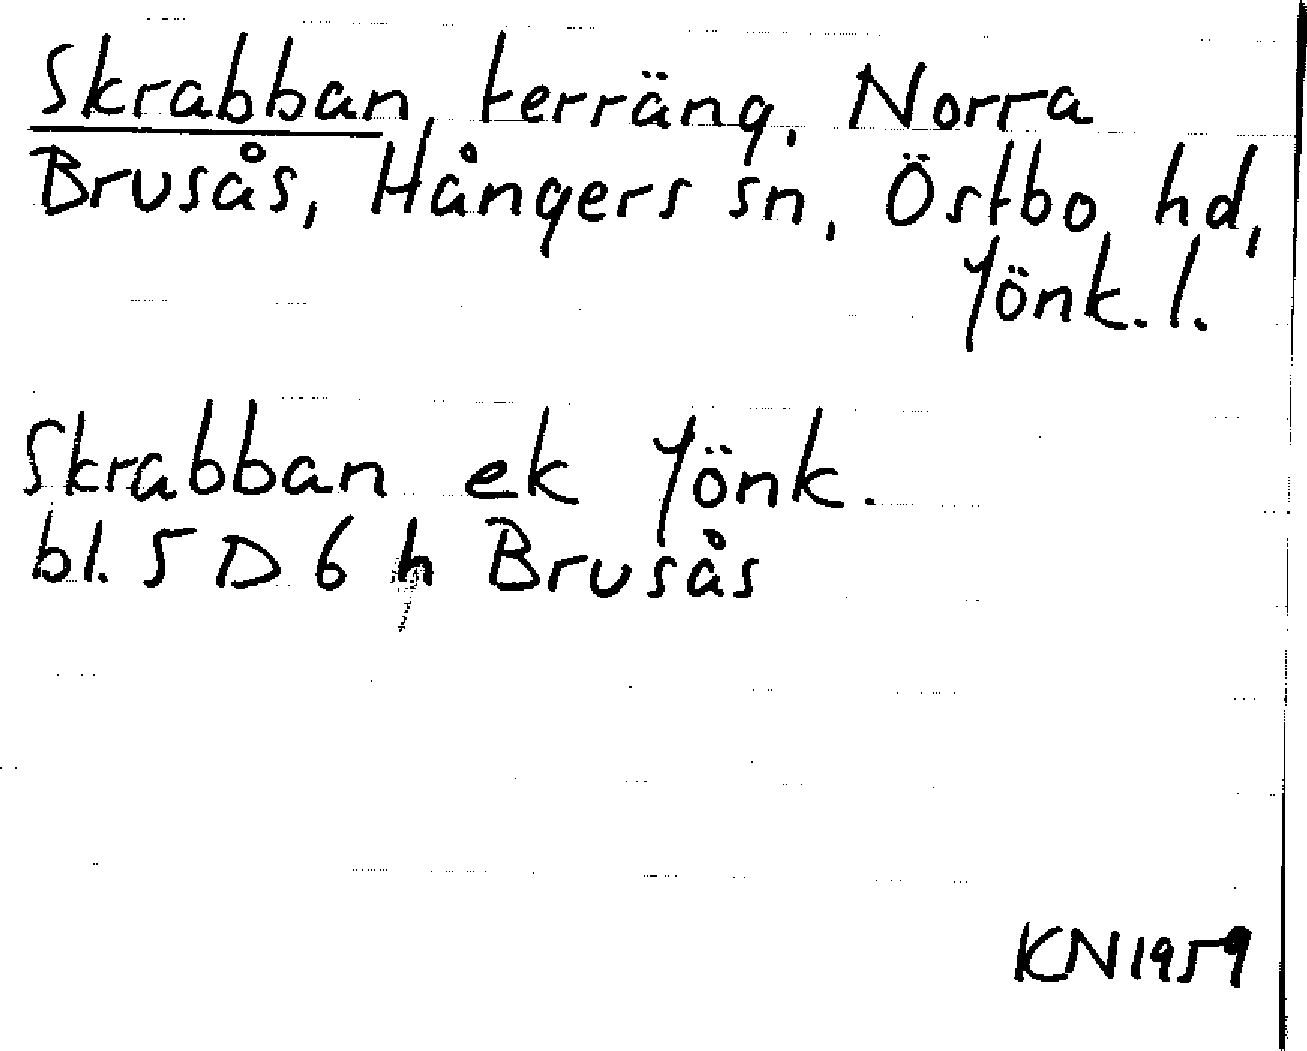 Skrabban, terräng, Norra
Brusås, Hångers sn, Östbo hd,
Jönk. l.
Skrabban ek Jönk.
bl. 5 D 6 h Brusås
KN 1959